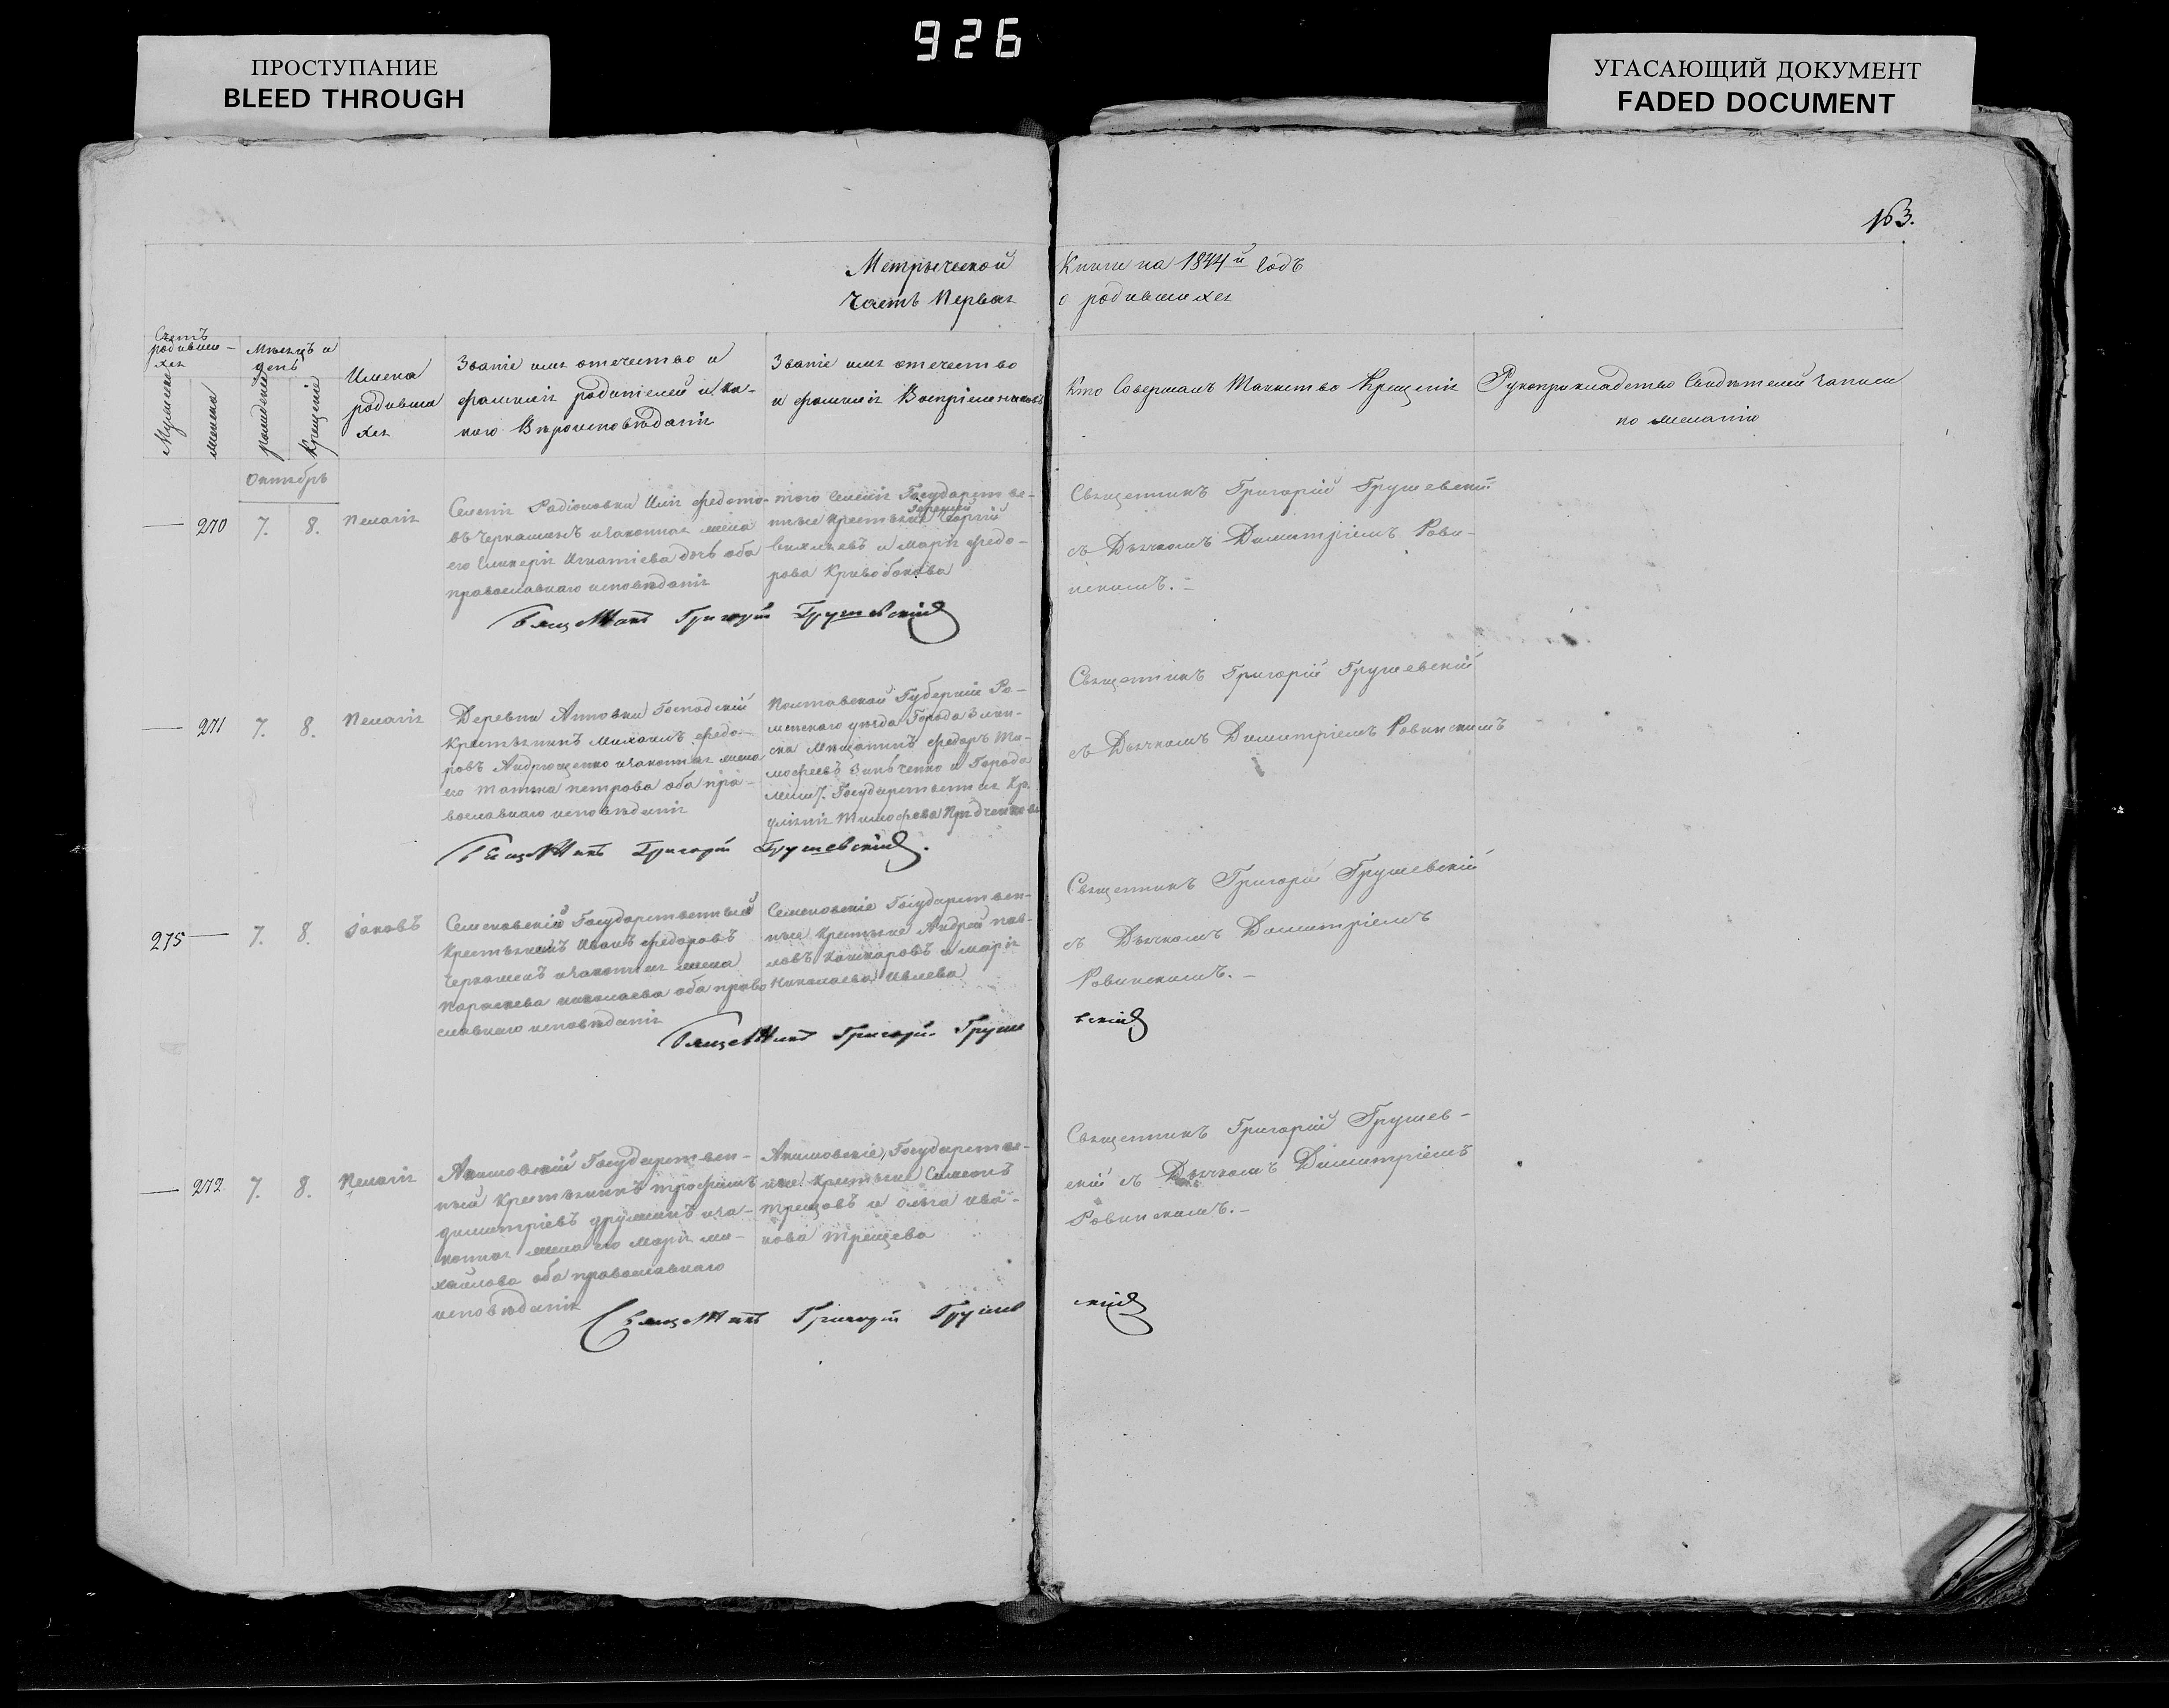 926
ПРОСТУПАНИЕ
BLEED THROUGH
УГАСАЮЩИЙ ДОКУМЕНТ
FADED DOCUMENT
163.
Метрической Книги на 1844й годъ
Часть Первая о родившихся
Счетъ родивших-ся
Мѣсяцъ и день
Мужеска
женска
рожденія
Крещенія
Имена
родивши
хся
Званіе имя отечество и
фамилія родителей и ка-
кого Вѣроисповѣданія
Званіе имя отечество
и фамилія Воспріемниковъ
Кто Совершалъ Таинство Крещенія
Рукоприкладство Свидѣтелей записи
по желанію
Октябрь
270 7. 8. Пелагія
Селенія Радіоновки Илія федото-
въ Черкашинъ и законная жена
его Гликерія Игнатіева дочь оба
православнаго исповѣданія
того Селенія Государствен-
ные Крестьяне Георгій
и Марія федо-
рова Кривобокова
Священникъ Григорій Грушевскій
съ Дьячкомъ Димитріемъ Рови-
нскимъ.
Священникъ Григорій Грушевскій
271 7. 8. Пелагія
Деревни Анновки Господскій
Крестьянинъ Михаилъ федо-
ровъ Андрющенко и законная жена
его Татіана петрова оба пра-
вославнаго исповѣданія
Полтавской Губерніи Ро-
менскаго уѣзда Города
Мѣщанинъ федоръ Ти-
мофеевъ Зинченко и Города
Государственная Кр.
Тимофеева
Священникъ Григорій Грушевскій
съ Дьячкомъ Димитріемъ Ровинскимъ
Священникъ Григорій Грушевскій.
275 7. 8. Іаковъ
Семеновскій Государственный
Крестьянинъ Иванъ федоровъ
Черкашенъ и законная жена
Параскева николаева оба право
славнаго исповѣданія
Семеновскіе Государствен-
ные Крестьяне Андрей пав-
ловъ Кашкаровъ и марія
Николаева Ивлева
Священникъ Григорій Грушевскій
съ Дьячкомъ Димитріемъ
Ровинскимъ.
Священникъ Григорій Грушевскій
272 7. 8. Пелагія
Акимовскій Государствен-
ный Крестьянинъ трофимъ
димитріевъ и за-
конная жена его Марія ми-
хайлова оба православнаго
исповѣданія
Акимовскіе Государствен-
ные Крестьяне Симеонъ
Трещовъ и Ольга ива-
нова Трещева
Священникъ Григорій Грушев-
скій съ Дьячкомъ Димитріемъ
Ровинскимъ.
Священникъ Григорій Грушевскій